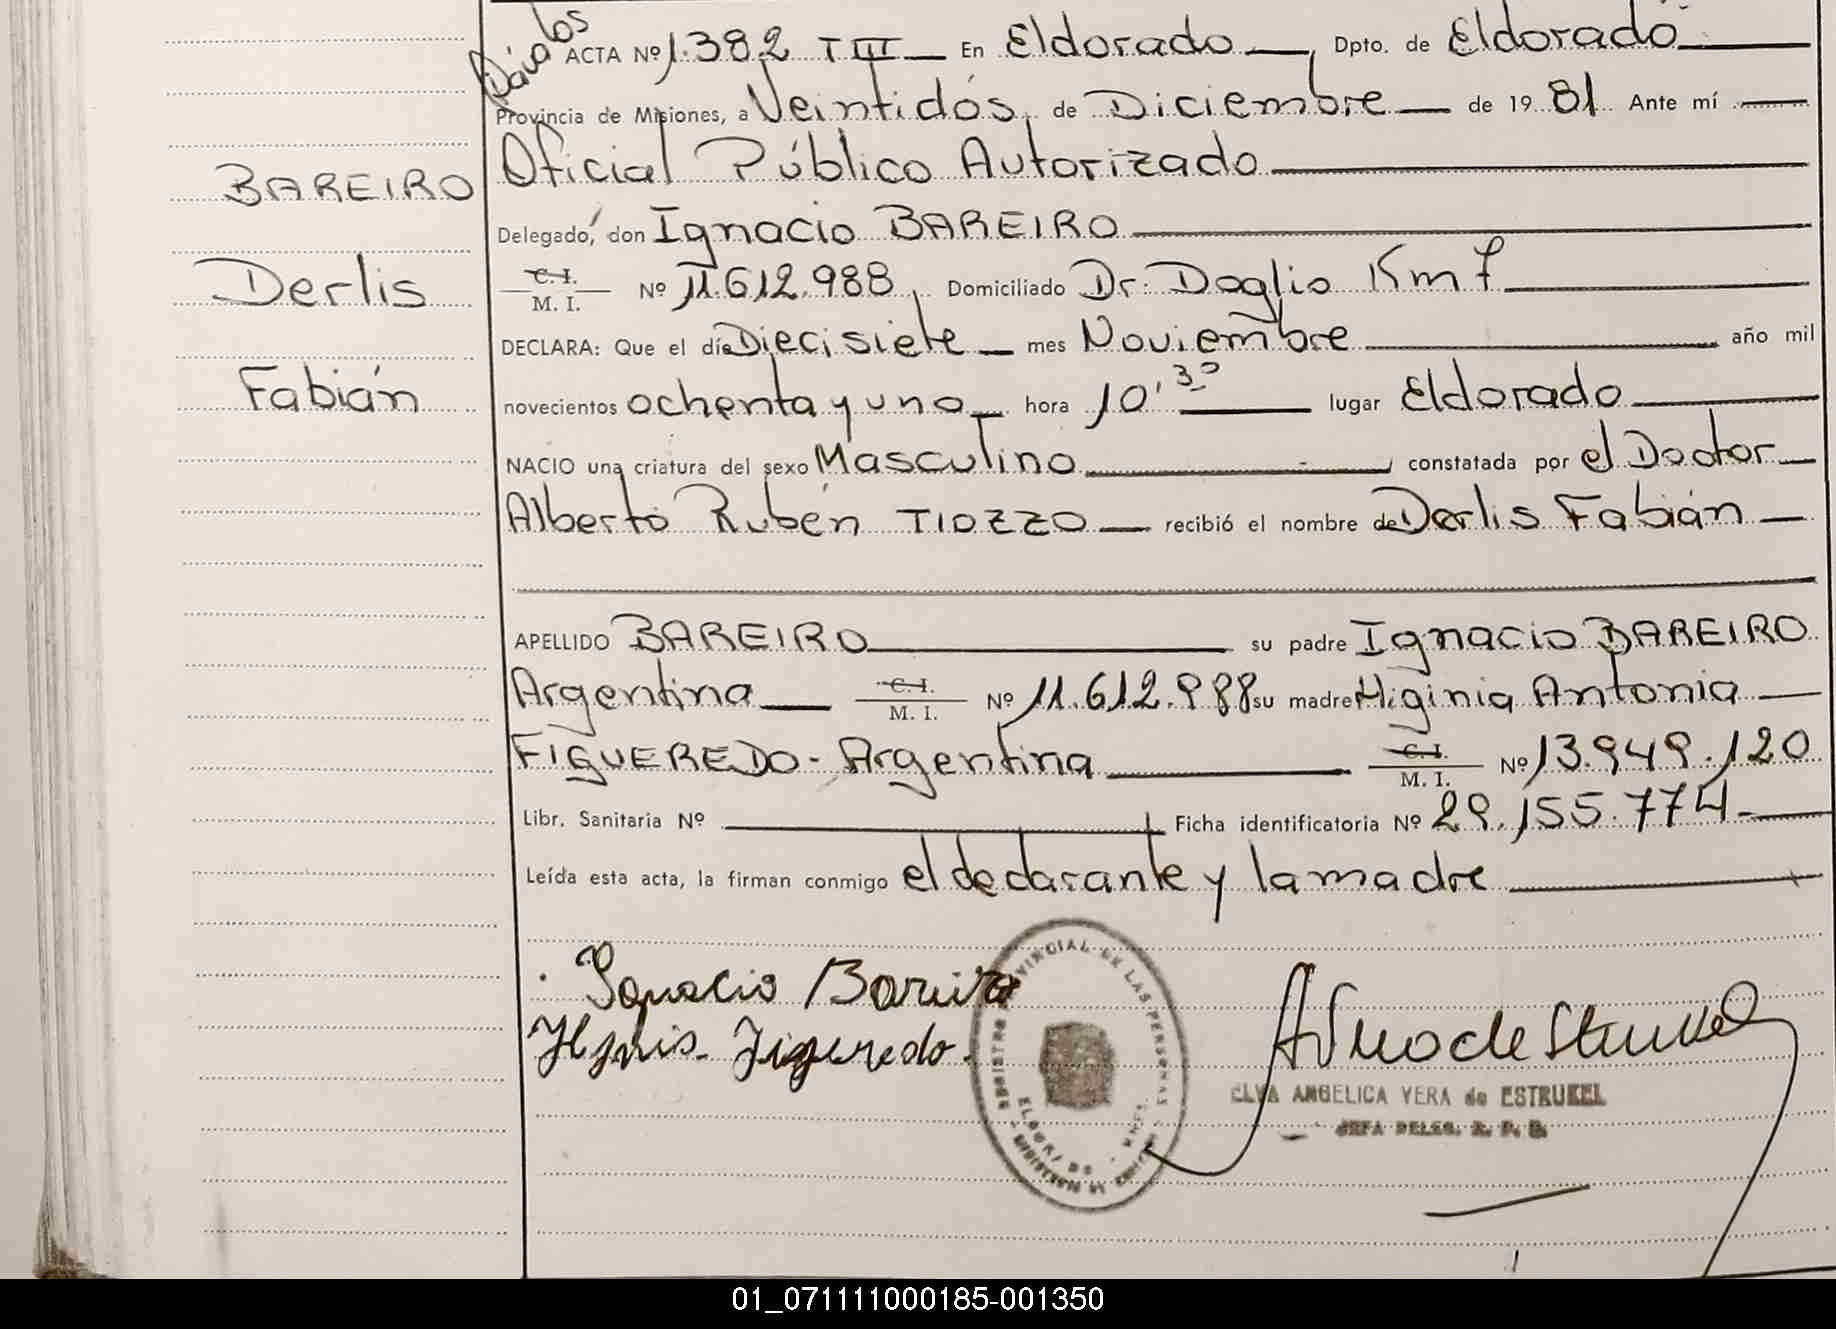 Para los
ACTA Nº 1.382 T III En Eldorado, Dpto. de Eldorado
Provincia de Misiones, a Veintidós de Diciembre de 19 81 Ante mí
Oficial Público Autorizado
BAREIRO
Delegado, don Ignacio BAREIRO
Derlis
C. I.
M. I. Nº 11.612.988, Domiciliado Dr. Doglio Km 7
DECLARA: Que el día Diecisiete mes Noviembre año mil
Fabián
novecientos ochenta y uno hora 10'30 lugar Eldorado
NACIO una criatura del sexo Masculino constatada por el Doctor
Alberto Rubén TIOZZO recibió el nombre de Derlis Fabián
APELLIDO BAREIRO su padre Ignacio BAREIRO
Argentina C. I. M. I. Nº 11.612.988 su madre Higinia Antonia
FIGUEREDO - Argentina C. I. M. I. Nº 13.949.120
Libr. Sanitaria Nº Ficha identificatoria Nº 29.155.774.-
Leída esta acta, la firman conmigo el declarante y la madre
Ignacio Bareiro
Figueredo.
REGISTRO PROVINCIAL DE LAS PERSONAS
ELDORADO
ELVA ANGELICA VERA de ESTRUKEL
JEFA DELEG. R. P. P.
01_071111000185-001350